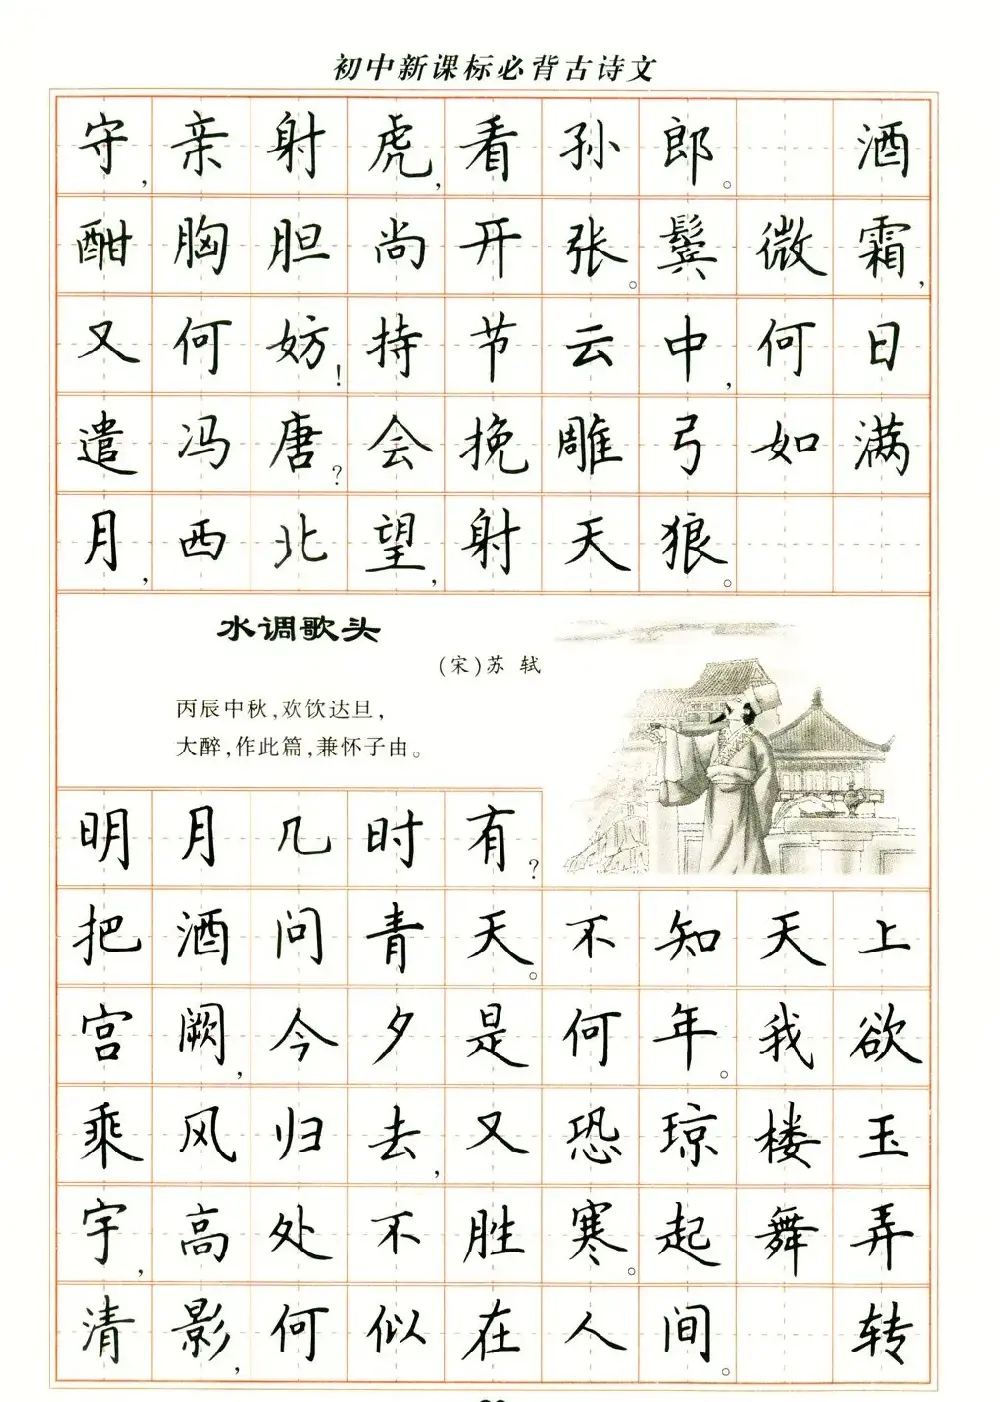 初中新课标必背古诗文
守,亲射虎,看孙郎。 酒
酣胸胆尚开张。鬓微霜,
又何妨!持节云中,何日
遣冯唐?会挽雕弓如满
月,西北望,射天狼。
水调歌头
(宋)苏 轼
丙辰中秋,欢饮达旦,
大醉,作此篇,兼怀子由。
明月几时有?
把酒问青天。不知天上
宫阙,今夕是何年。我欲
乘风归去,又恐琼楼玉
宇,高处不胜寒。起舞弄
清影,何似在人间。 转